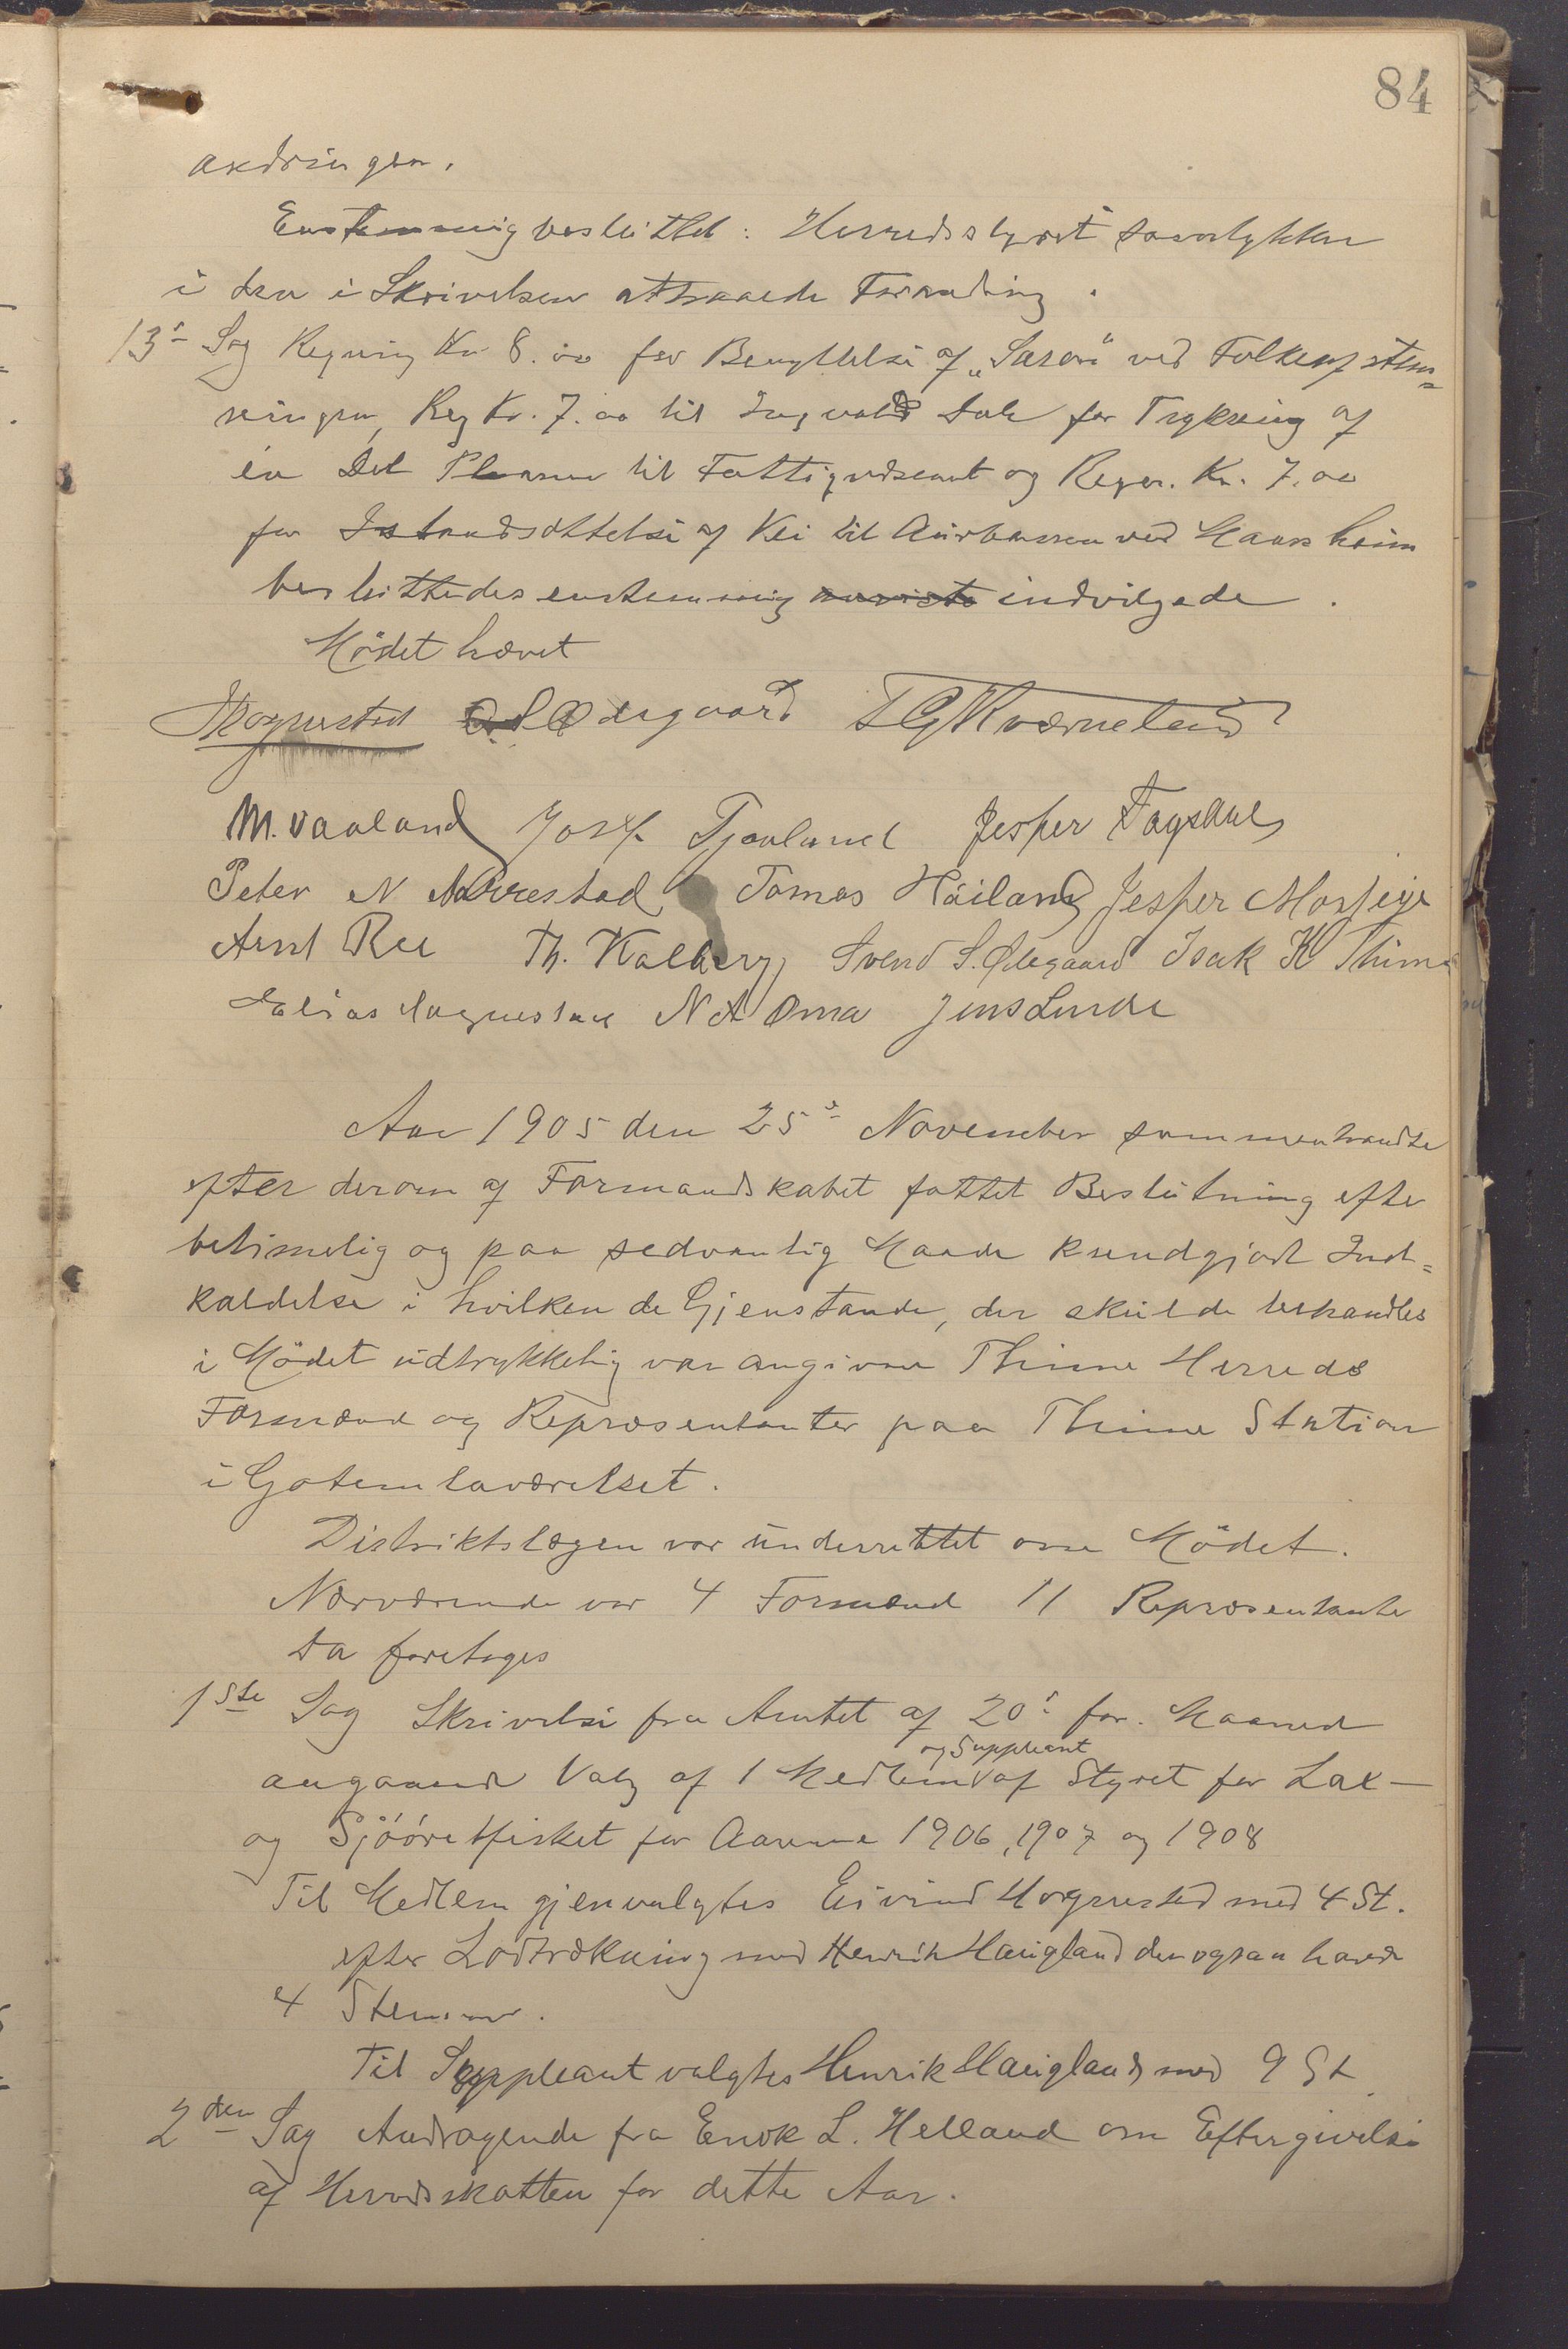 84
andringen.
Enstemmig besluttet: Herredsstyret samtykker
i den i Skrivelsen attraaede Forandring.
13de Sag Regning Kr 8.00 for Benyttelse af "Saron" ved Folkeafstem=
ningen, Reg Kr. 7.00 til Ingvald Dale for Trykning af
en Del Planer til Fattigvæsenet og Regn. Kr. 7.00
for Istandsættelse af Vei til ved Haarr heim
besluttedes enstemmig indvilgede.
Mödet hævet
Mognestad O S Ødegaard T G Kværneland
M. Vaaland Josef Tjaaland Jesper Fagskul
Peter N Aarrestad Tomas Håiland Jesper Mossige
Arnt Ree Th. Kalberg Svend S. Ødegaard Isak K Thime
Elias Mognestad N A Oma Jens Lunde
Aar 1905 den 25de November sammentraadte
efter derom af Formandskabet fattet Beslutning efter
betimelig og paa sedvanlig Maade kundgjort Ind=
kaldelse i hvilken de Gjenstande, der skulde behandles
i Mödet udtrykkelig var angivne Thime Herreds
Formænd og Repræsentanter paa Thime Station
i Gotemlaværelset.
Distriktslægen var underrettet om Mödet.
Nærværende var 4 Formænd 11 Repræsentanter
Da foretoges
1ste Sag Skrivelse fra Amtet af 20de for. Maaned
og Suppleant
angaaende Valg af 1 Medlem af Styret for Lax-
og Sjöörretfisket for Aarene 1906, 1907 og 1908
Til Medlem gjenvalgtes Eivind Mognestad med 4 St.
efter Lodtrækning med Henrik Haugland der ogsaa havde
4 Stemmer.
Til Suppleant valgtes Henrik Haugland med 9 St.
2den Sag Andragende fra Enok L. Helland om Eftergivelse
af Herredsskatten for dette Aar.